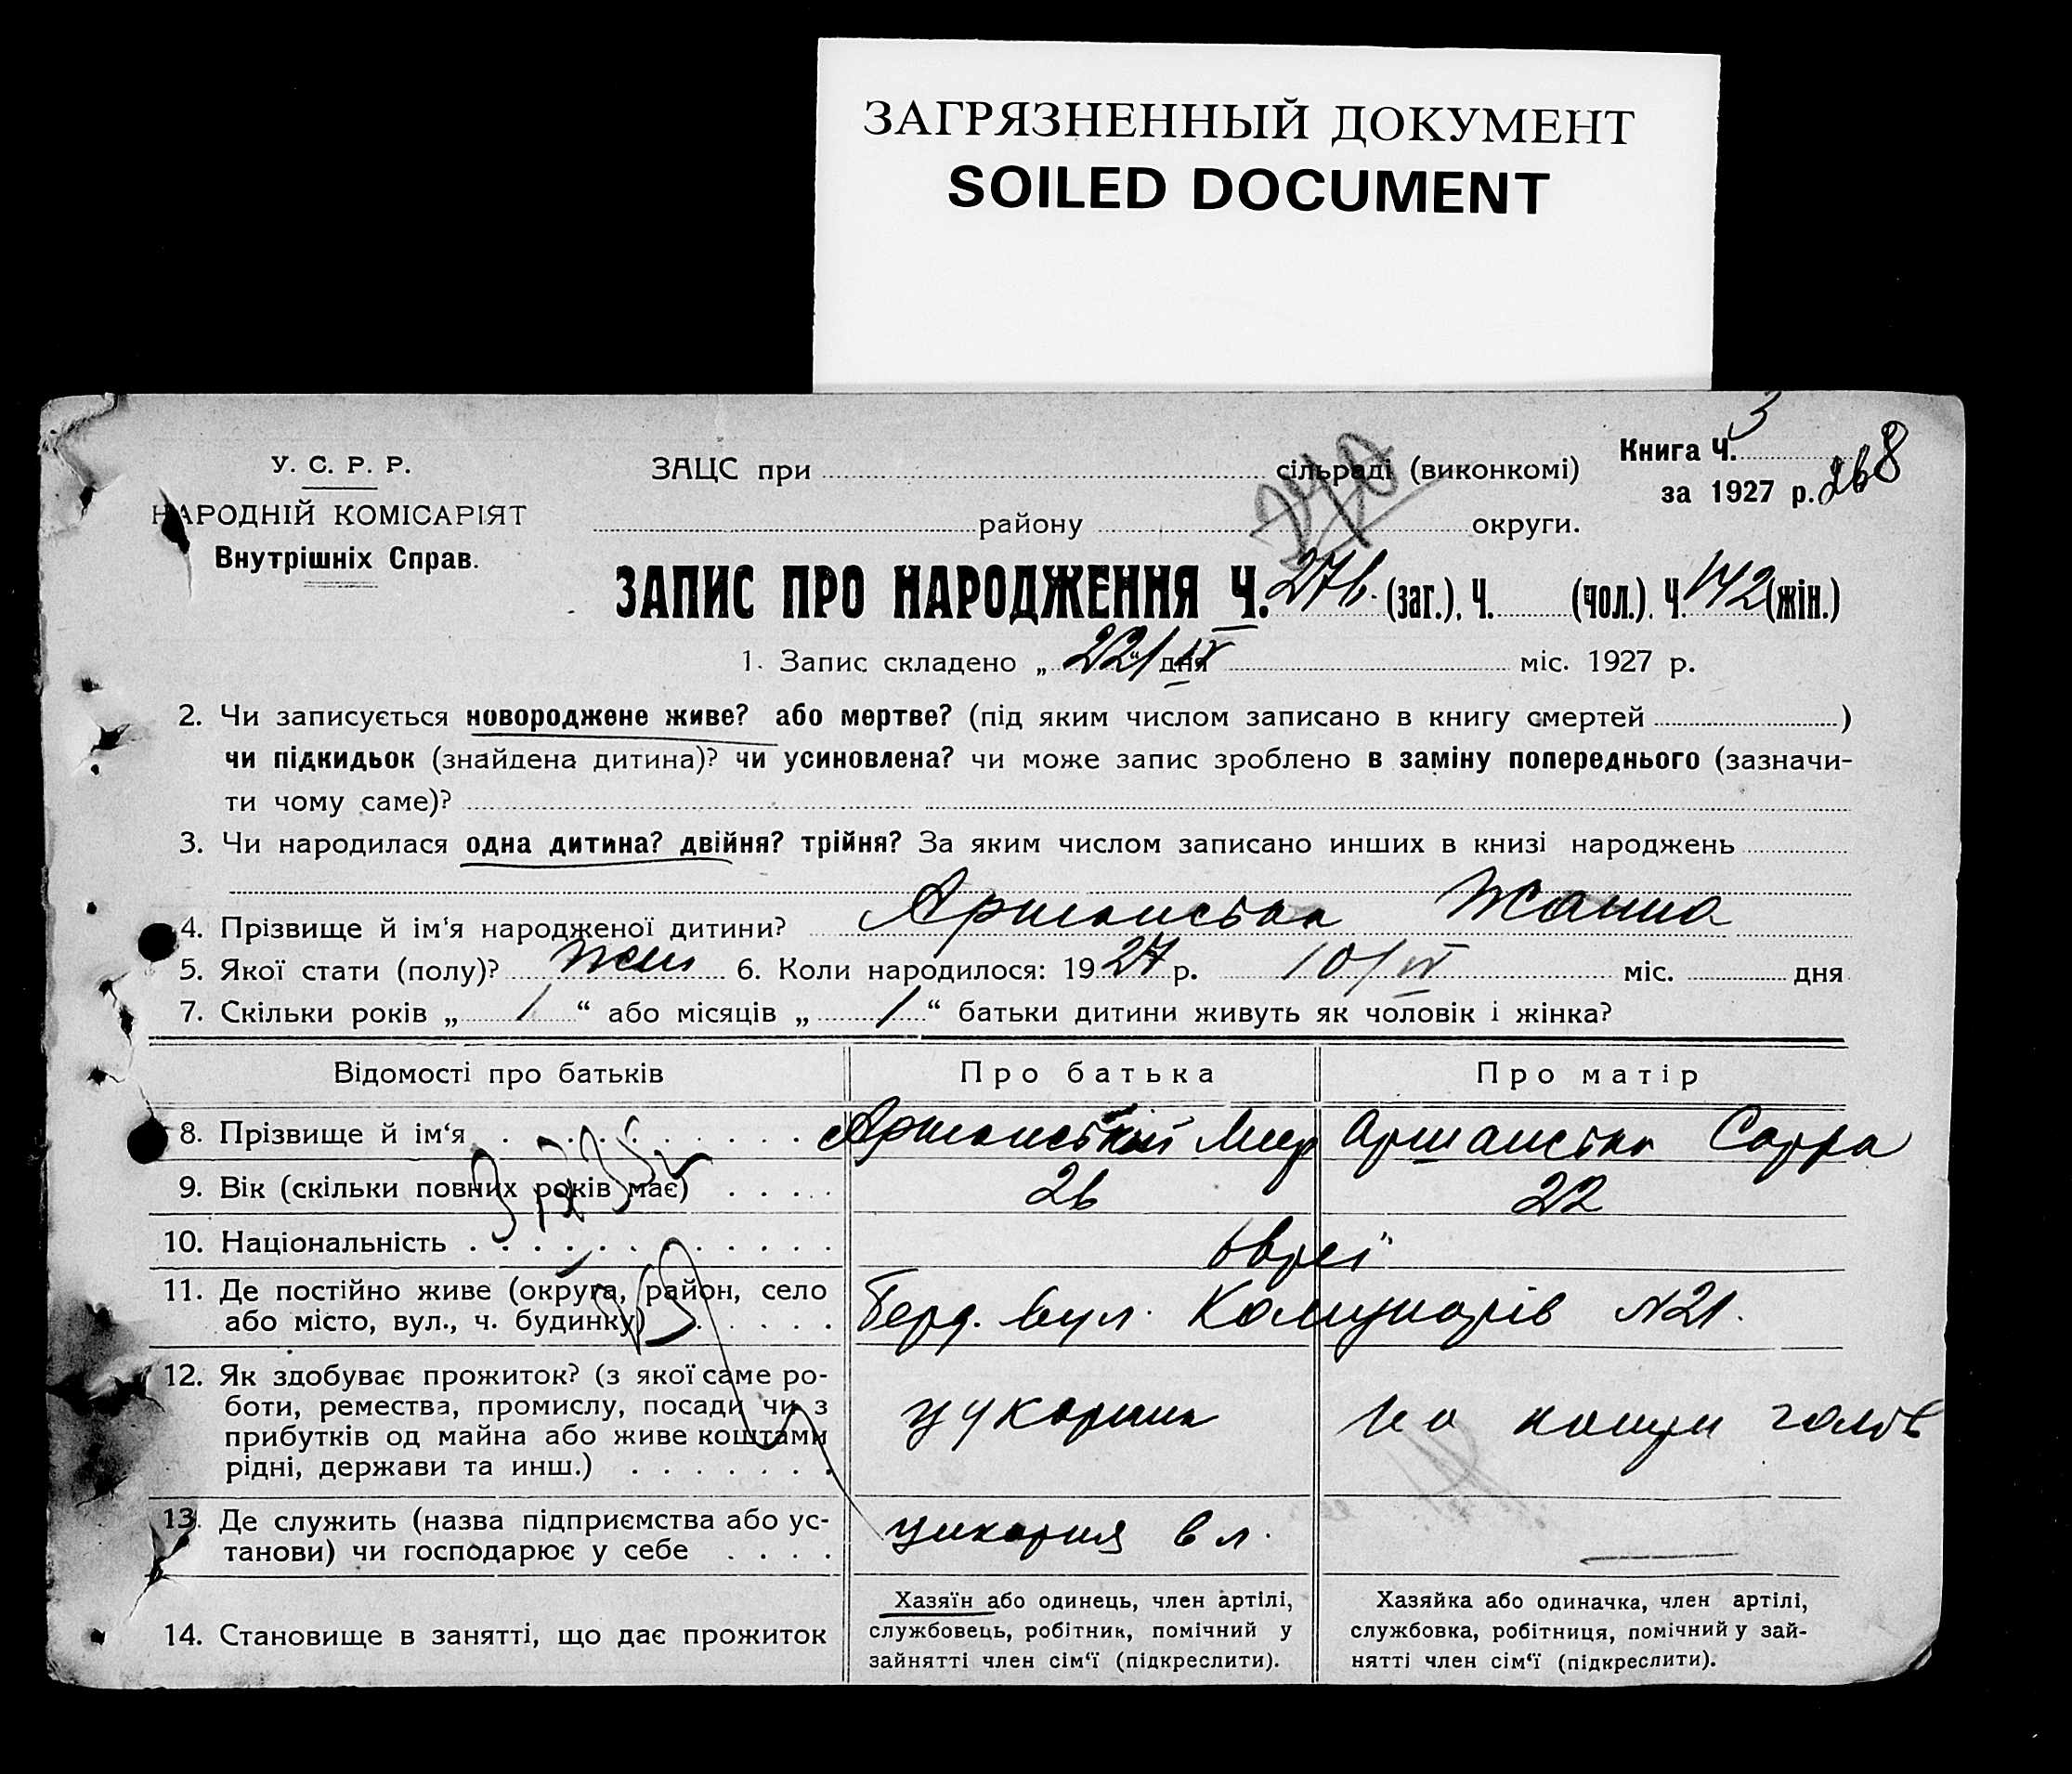 ЗАГРЯЗНЕННЫЙ ДОКУМЕНТ
SOILED DOCUMENT
У. С. Р. Р.
НАРОДНІЙ КОМІСАРІЯТ
Внутрішніх Справ.
ЗАЦС при сільраді (виконкомі)
району округи.
Книга Ч. 3
за 1927 р. 268
270
ЗАПИС ПРО НАРОДЖЕННЯ Ч. 276. (заг.), Ч. (чол.), Ч. 142 (жін.)
1. Запис складено „ 22/IV “ дня міс. 1927 р.
2. Чи записується новороджене живе? або мертве? (під яким числом записано в книгу смертей )
чи підкидьок (знайдена дитина)? чи усиновлена? чи може запис зроблено в заміну попереднього (зазначи-
ти чому саме)?
3. Чи народилася одна дитина? двійня? трійня? За яким числом записано инших в книзі народжень
4. Прізвище й ім‘я народженої дитини? Аршанська Жанна
5. Якої стати (полу)? жін 6. Коли народилося: 1927 р. 10/IV міс. дня
7. Скільки років „ 1 “ або місяців „ 1 “ батьки дитини живуть як чоловік і жінка?
Відомості про батьків Про батька Про матір
8. Прізвище й ім‘я Аршанський Меєр Аршанська Сарра
9. Вік (скільки повних років має) 26 22
10. Національність євреї
11. Де постійно живе (округа, район, село
або місто, вул., ч. будинку) Берд. вул. Комунарів №21.
12. Як здобуває прожиток? (з якої саме ро-
боти, ремества, промислу, посади чи з
прибутків од майна або живе коштами
рідні, держави та инш.) цукорник на кошти голов
13. Де служить (назва підприємства або ус-
танови) чи господарює у себе вл.
14. Становище в занятті, що дає прожиток
Хазяїн або одинець, член артілі,
службовець, робітник, помічний у
зайнятті член сім‘ї (підкреслити).
Хазяйка або одиначка, член артілі,
службовка, робітниця, помічний у зай-
нятті член сім‘ї (підкреслити).